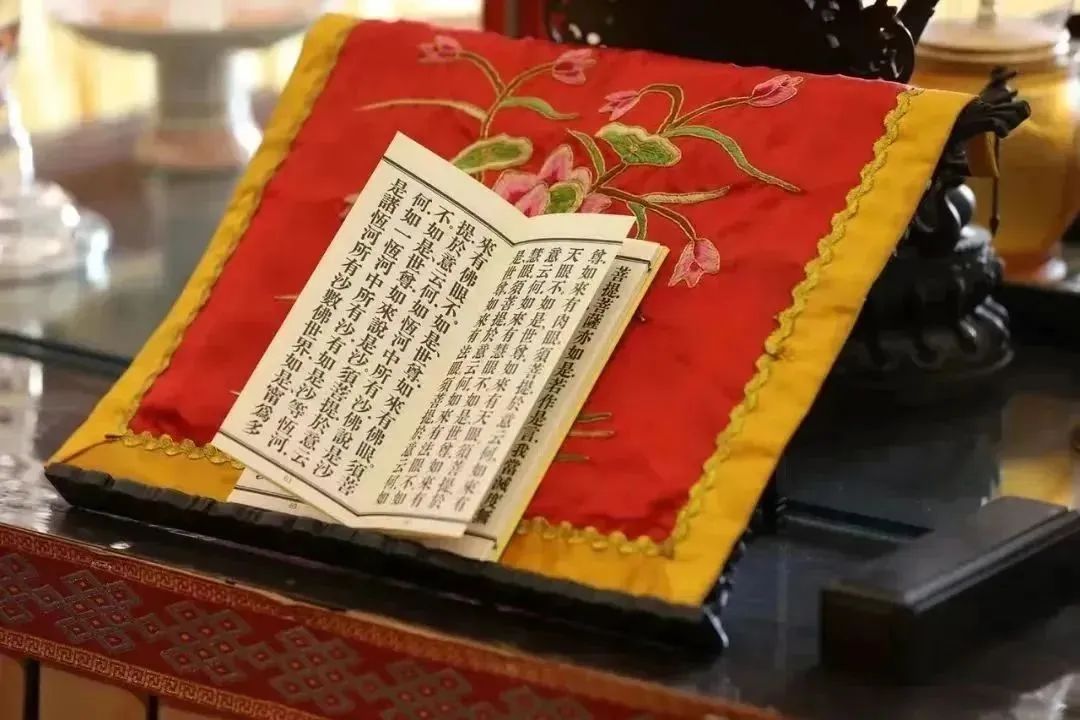 菩提菩薩亦如是若作是言我當滅度
尊如來有肉眼須菩提於意云何如來有
天眼不如是世尊如來有天眼須菩提於
意云何如來有慧眼不如是世尊如來有
慧眼須菩提於意云何如來有法眼不如
是世尊如來有法眼須菩提於意云何如
來有佛眼不。如是世尊如來有佛眼。須菩
提於意云何如恆河中所有沙佛說是沙
不。如是世尊如來說是沙。須菩提於意云
何如一恆河中所有沙有如是沙等恆河。
是諸恆河所有沙數佛世界如是甯爲多